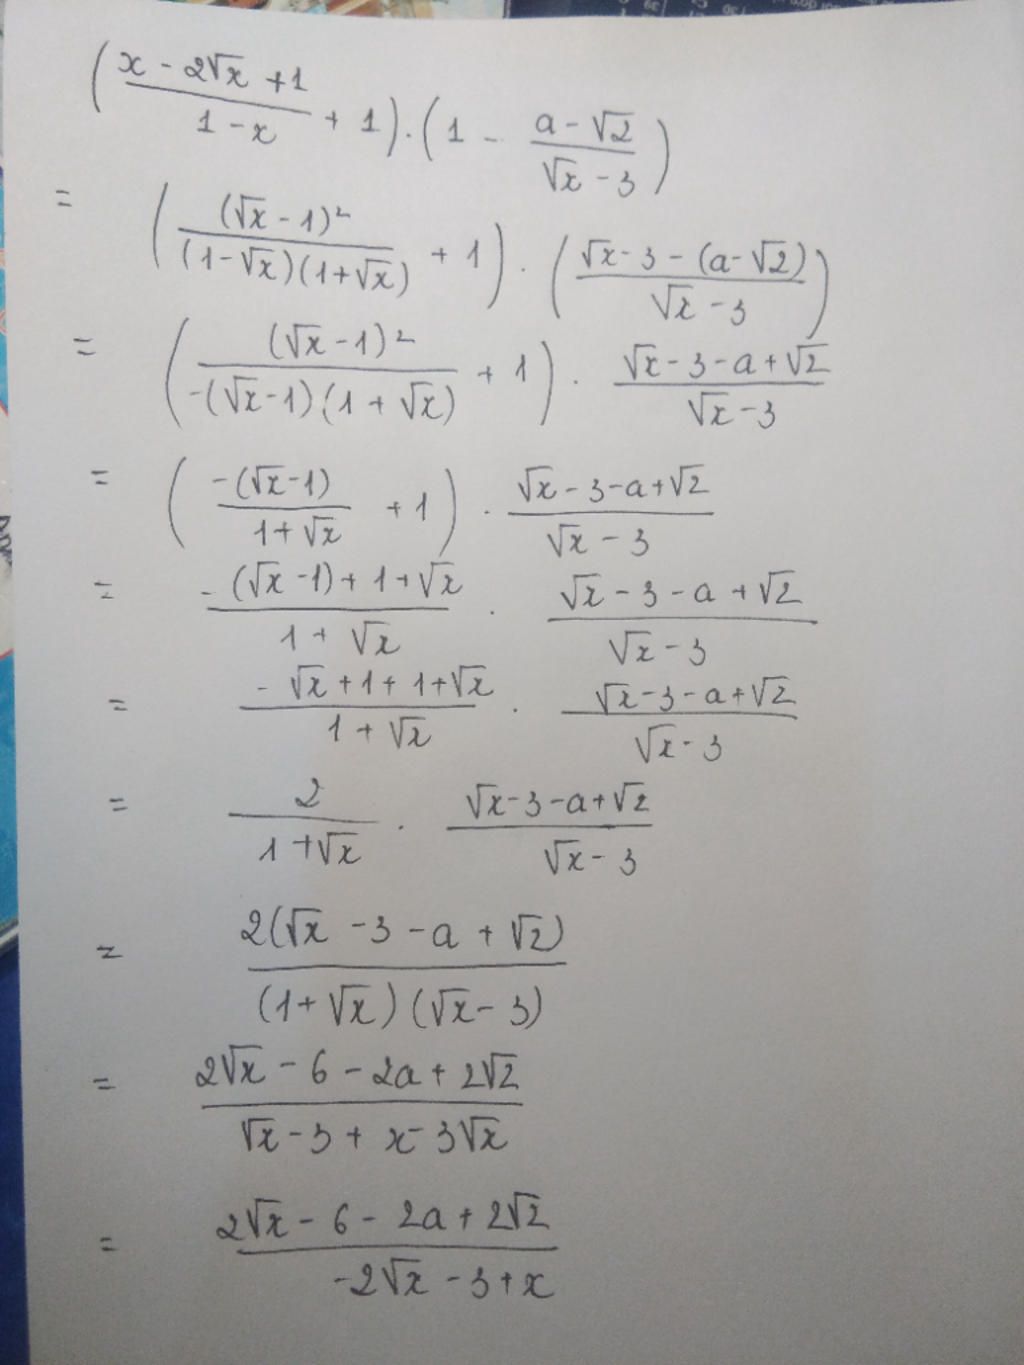 (x - 2√x + 1 / 1 - x + 1) . (1 - a - √2 / √x - 3)
= ((√x - 1)² / (1 - √x)(1 + √x) + 1) . (√x - 3 - (a - √2) / √x - 3)
= ((√x - 1)² / -(√x - 1)(1 + √x) + 1) . √x - 3 - a + √2 / √x - 3
= (-(√x - 1) / 1 + √x + 1) . √x - 3 - a + √2 / √x - 3
= -(√x - 1) + 1 + √x / 1 + √x . √x - 3 - a + √2 / √x - 3
= -√x + 1 + 1 + √x / 1 + √x . √x - 3 - a + √2 / √x - 3
= 2 / 1 + √x . √x - 3 - a + √2 / √x - 3
= 2(√x - 3 - a + √2) / (1 + √x)(√x - 3)
= 2√x - 6 - 2a + 2√2 / √x - 3 + x - 3√x
= 2√x - 6 - 2a + 2√2 / -2√x - 3 + x